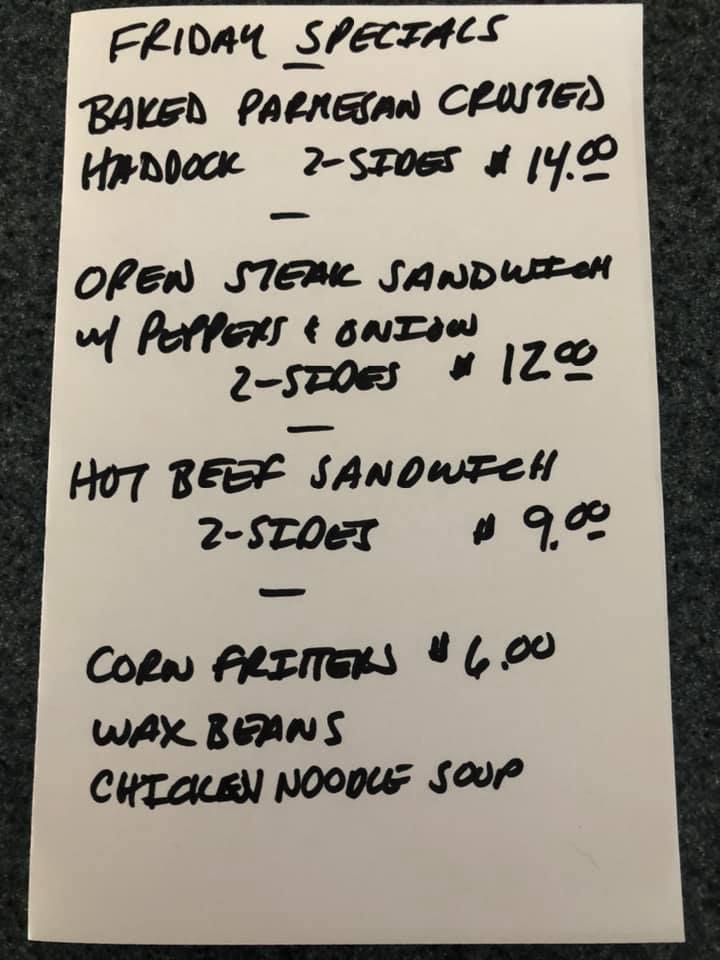 FRIDAY SPECIALS
BAKED PARMESAN CRUSTED
HADDOCK 2-SIDES $14.00
—
OPEN STEAK SANDWICH
w/ PEPPERS & ONION
2-SIDES $12.00
—
HOT BEEF SANDWICH
2-SIDES $9.00
—
CORN FRITTERS $6.00
WAX BEANS
CHICKEN NOODLE SOUP